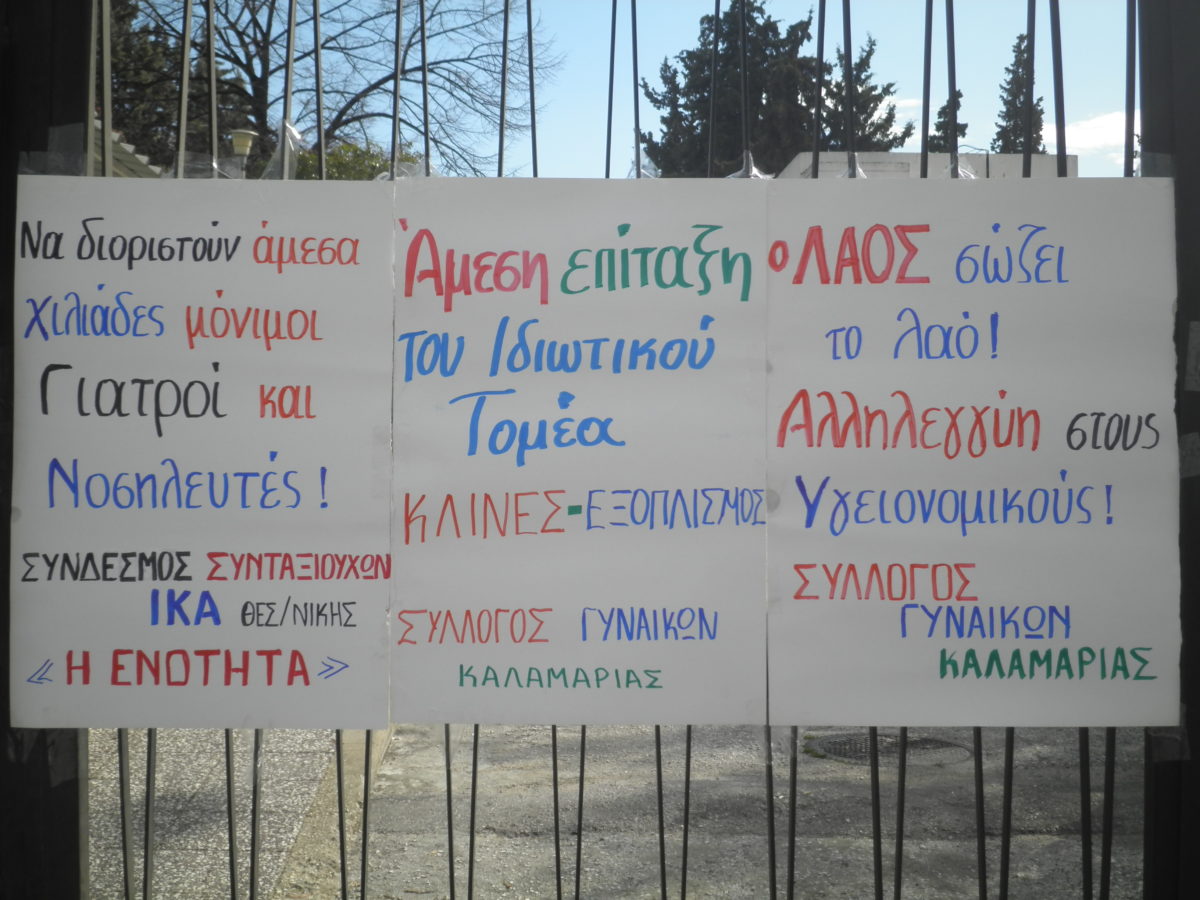 Να διοριστούν άμεσα
χιλιάδες μόνιμοι
Γιατροί και
Νοσηλευτές!
ΣΥΝΔΕΣΜΟΣ ΣΥΝΤΑΞΙΟΥΧΩΝ
ΙΚΑ ΘΕΣ/ΝΙΚΗΣ
«Η ΕΝΟΤΗΤΑ»
Άμεση επίταξη
του Ιδιωτικού
Τομέα
ΚΛΙΝΕΣ-ΕΞΟΠΛΙΣΜΟΣ
ΣΥΛΛΟΓΟΣ ΓΥΝΑΙΚΩΝ
ΚΑΛΑΜΑΡΙΑΣ
ο ΛΑΟΣ σώζει
το λαό!
Αλληλεγγύη στους
Υγειονομικούς!
ΣΥΛΛΟΓΟΣ
ΓΥΝΑΙΚΩΝ
ΚΑΛΑΜΑΡΙΑΣ